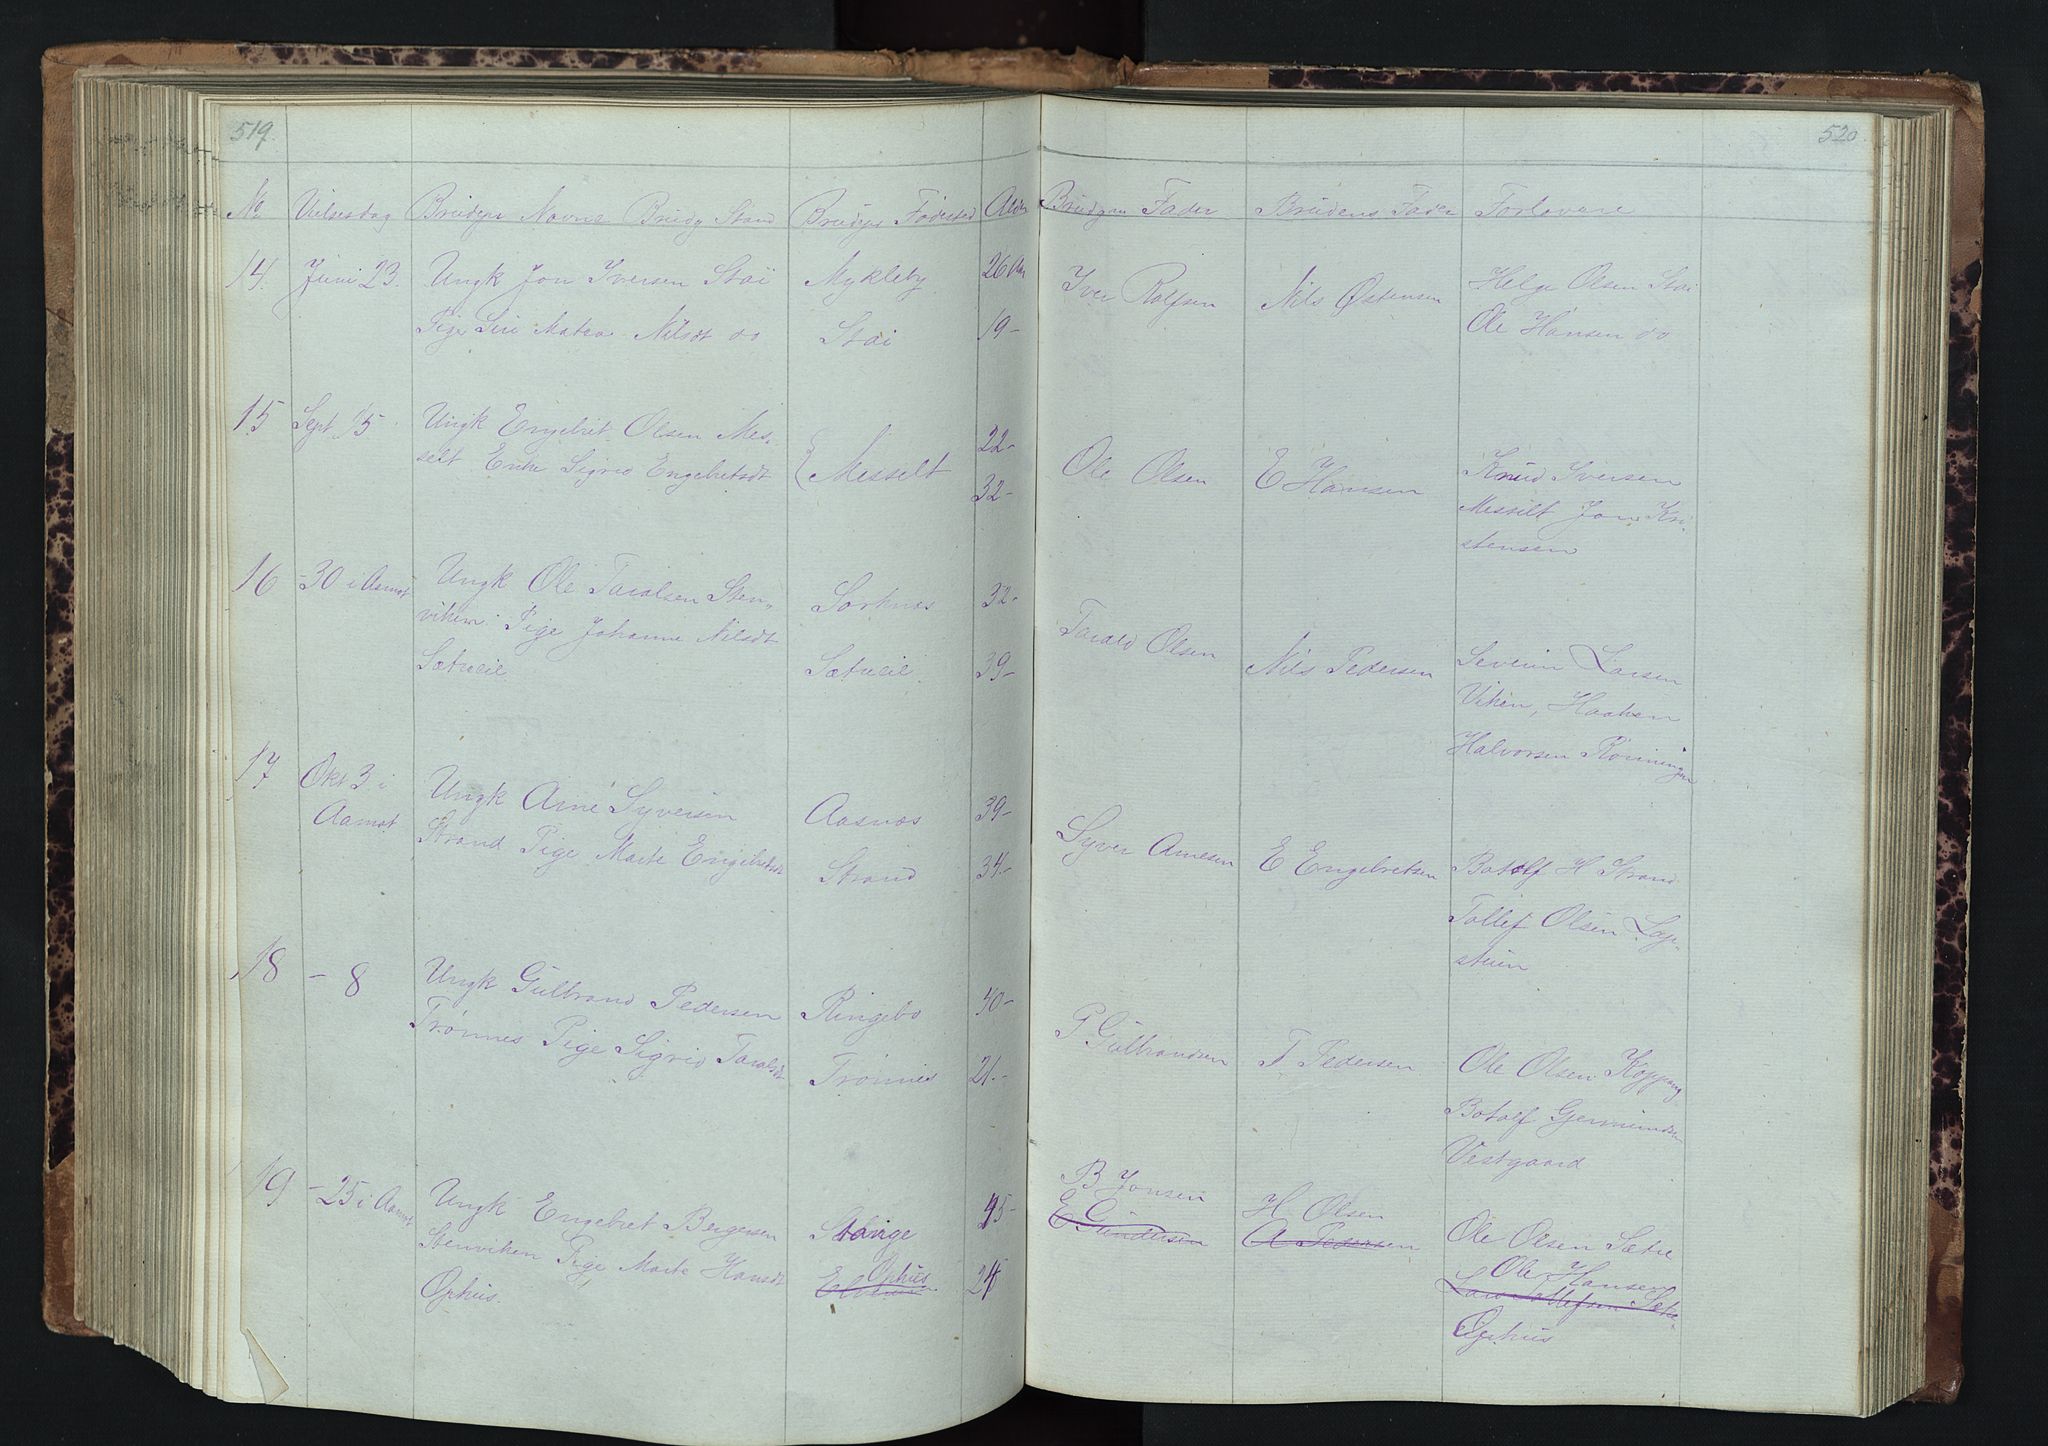 519
No Vielsesdag Brudeps Navne Brudg Stand Brudeps Fødested Alder
14. Juni 23. Ungk Jon Iversen Stai Mykleby 26 Aar
Pige Siri Matea Nilsdt do Stai 19-
15 Sept 15 Ungk Engebret Olsen Mes-
selt Enke Sigrid Engebretsdt Messelt 22-
32-
16 -30 i Aamot Ungk Ole Taralsen Sten-
viken Pige Johanne Nilsdt Sorknæs 32-
Sætreeie Sætreeie 39-
17 Okt 3 i Ungk Arne Syversen Aasnæs 39-
Aamot Strand Pige Marte Engebretsdt Strand 34-
18 - 8 Ungk Gulbrand Pedersen Ringebo 40-
Trønnes Pige Sigrid Taralsdt Trønnes 21.-
19 -25 i Aamot Ungk Engebret Bergersen Stange
Stenviken Pige Marte Hansdt Ophus
Ophus.
520
Brudgom Fader Brudens Fader Forlovere
Iver Rolfsen Nils Østensen Helge Olsen Stai
Ole Hansen do
Ole Olsen E Hansen Knud Iversen
Messelt Jon Kri-
stensen
Tarald Olsen Nils Pedersen Severin Larsen
Viken, Haaken
Halvorsen Rønningen
Syver Arnesen E Engebretsen Botolf H Strand
Tollef Olsen Løp-
steien
P Gulbrandsen T Pedersen Ole Olsen Koppang
Botolf Gjermundsen
Vestgaard
B Jonsen H Olsen
E. Gundersen A Pedersen Ole Olsen Sætre
Ole Hansen
Lars Tollefsen Sætre
Ophus